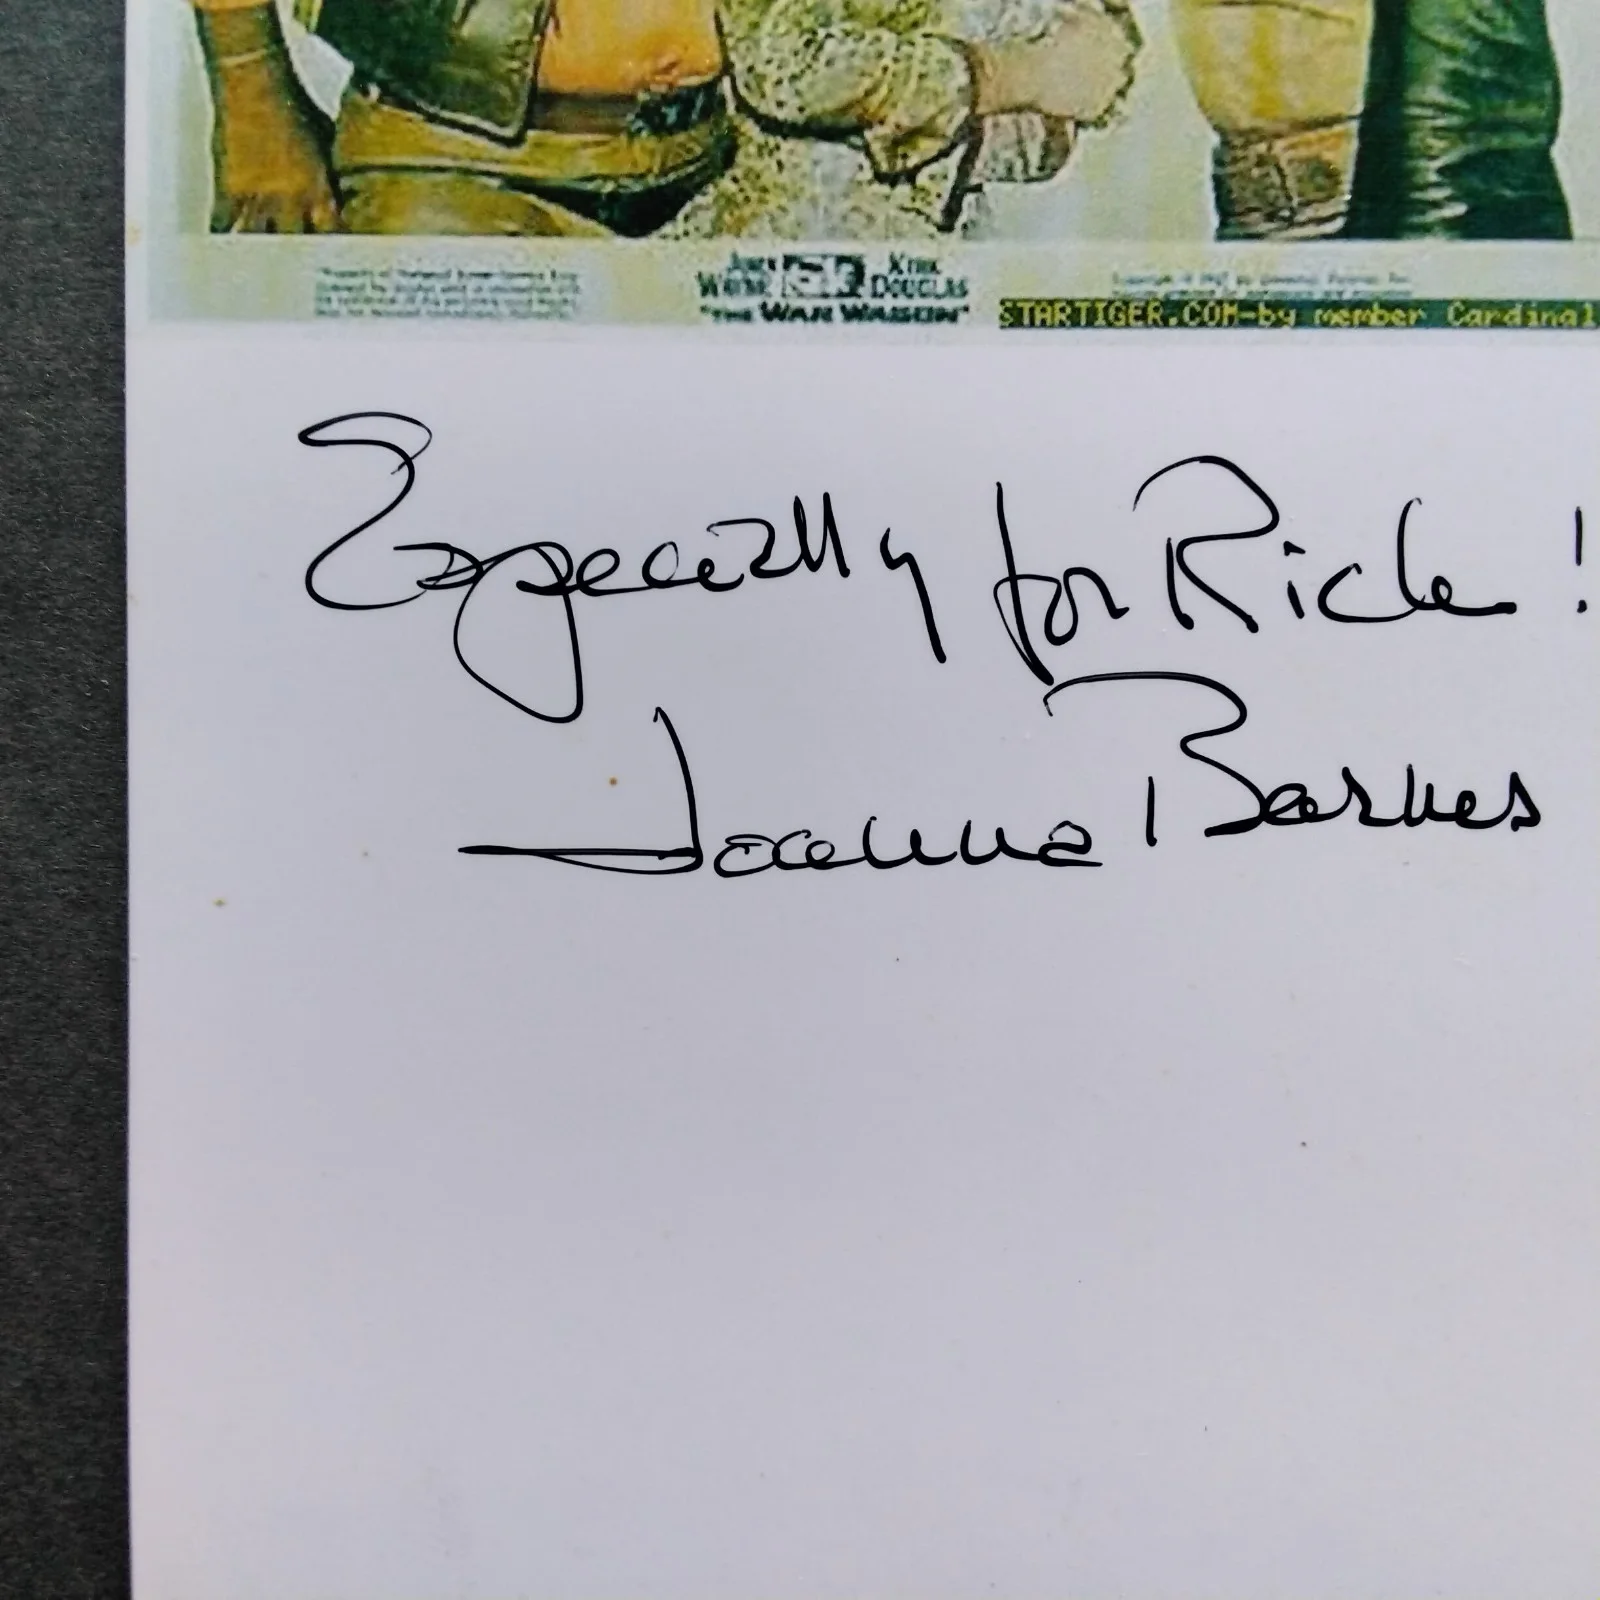 JOHN WAYNE KIRK DOUGLAS
"THE WAR WAGON"
STARTIGER.COM-by member Cardinal
Especially for Rick!
Joanna Barnes